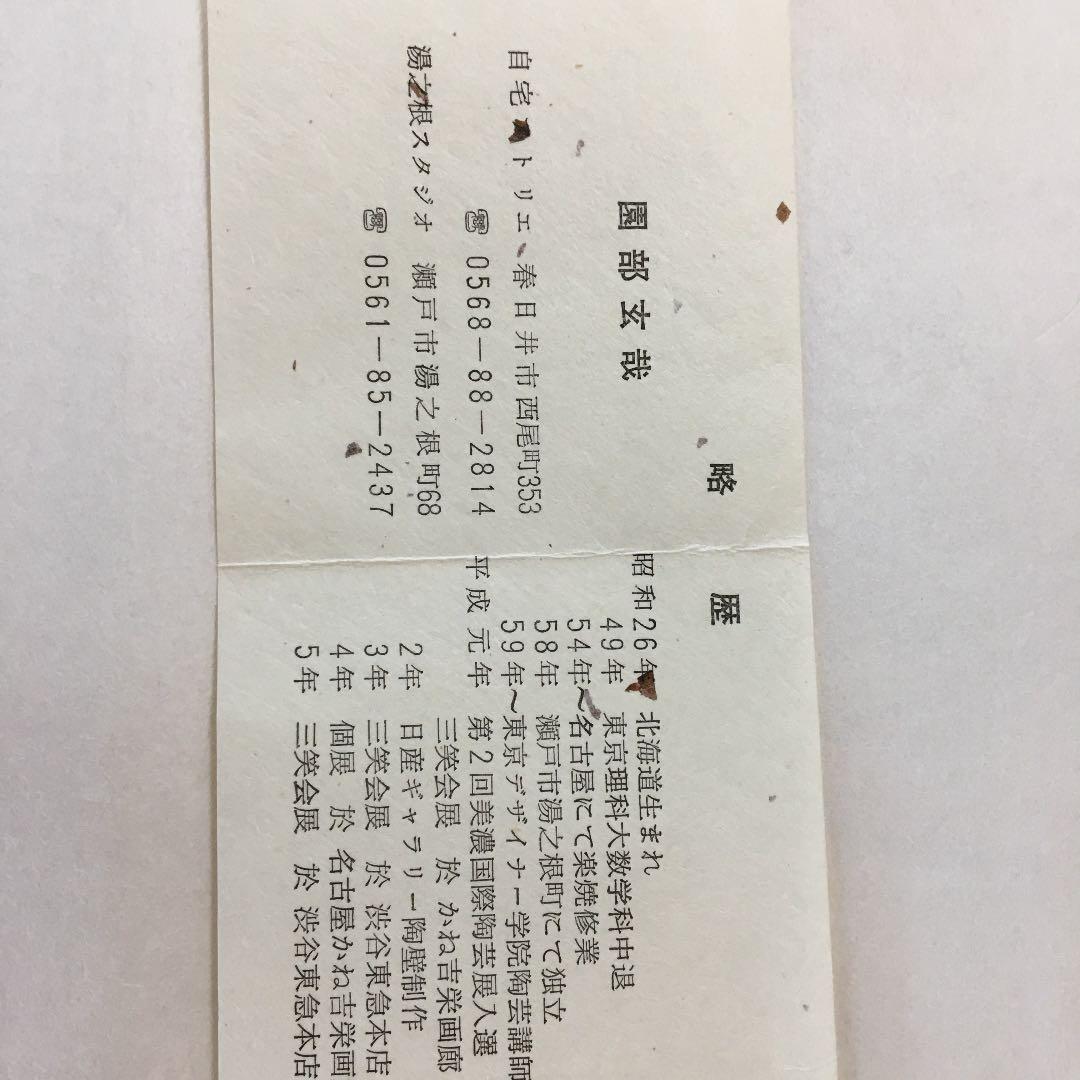 略歴
園部玄哉
自宅アトリエ 春日井市西尾町353
☎ 0568－88－2814
湯之根スタジオ 瀬戸市湯之根町68
☎ 0561－85－2437
昭和26年 北海道生まれ
49年 東京理科大数学科中退
54年～名古屋にて楽焼修業
58年 瀬戸市湯之根町にて独立
59年～東京デザイナー学院陶芸講師
平成元年 第2回美濃国際陶芸展入選
三笑会展 於 かね吉栄画廊
2年 日産ギャラリー陶壁制作
3年 三笑会展 於 渋谷東急本店
4年 個展 於 名古屋かね吉栄画
5年 三笑会展 於 渋谷東急本店